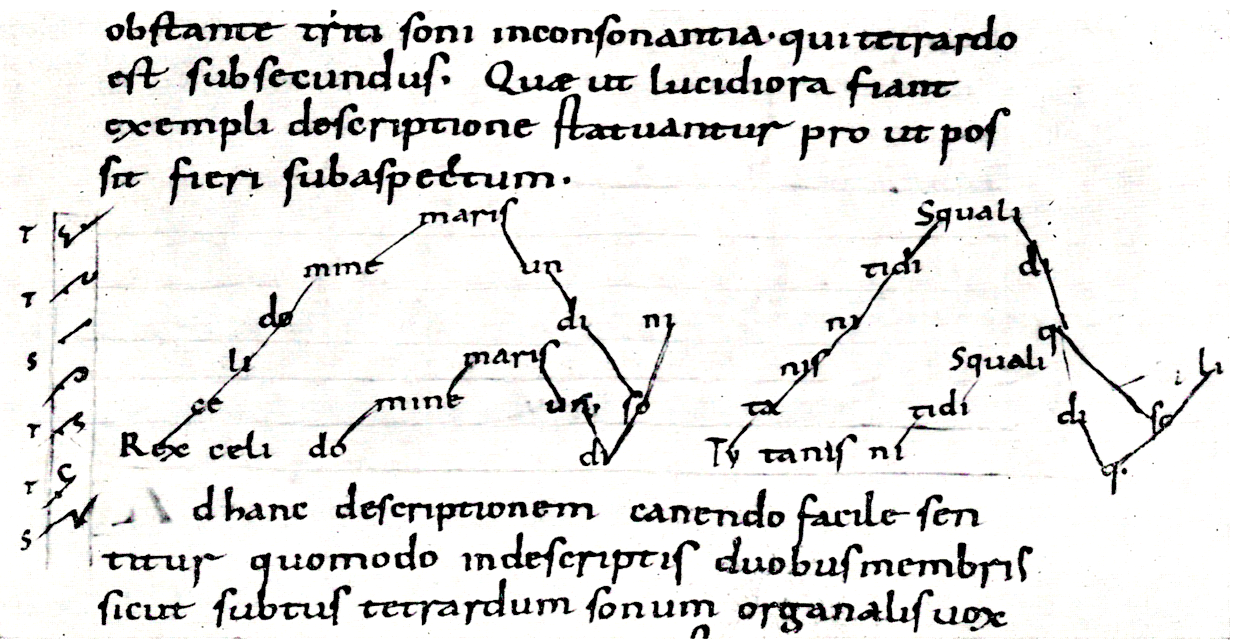 obstante triti soni inconsonantia· qui tetrardo
est subsecundus. Quæ ut lucidiora fiant
exempli descriptione statuantur pro ut pos
sit fieri sub aspectum.
T maris Squali
T mine un tidi di
do di ni ni q
S li maris nis Squali i li
T ce mine un, so ta tidi di so
Rex celi do di Ty tanis ni q.
T
S
d hanc descriptionem canendo facile sen
titur quomodo in descriptis duobus membris
sicut subtus tetrardum sonum organalis uox